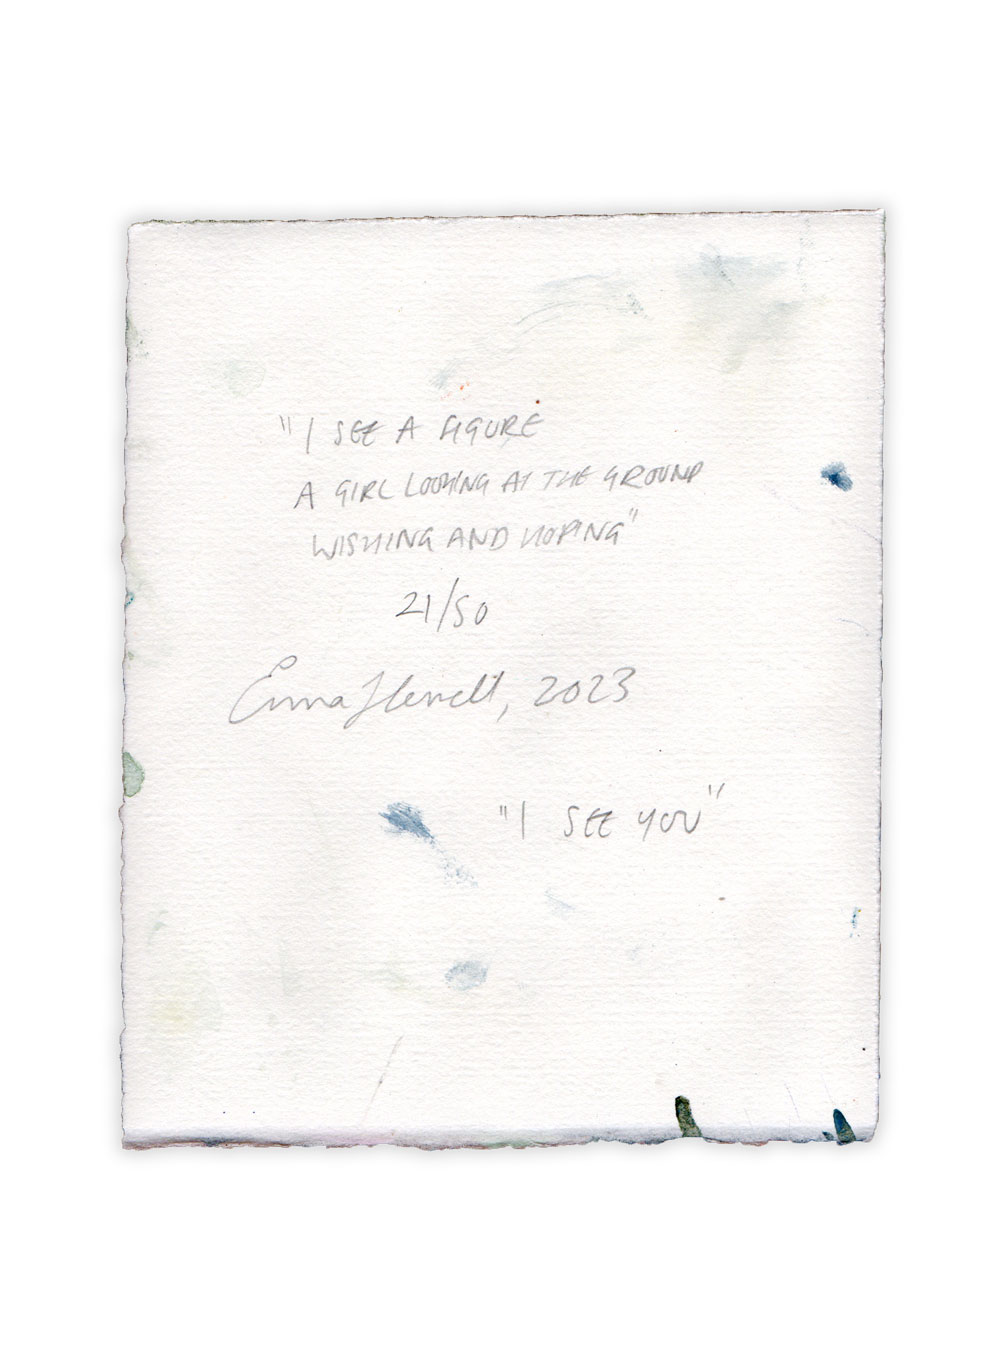 "I SEE A FIGURE
A GIRL LOOKING AT THE GROUND
WISHING AND HOPING"
21/50
Emma , 2023
"I SEE YOU"